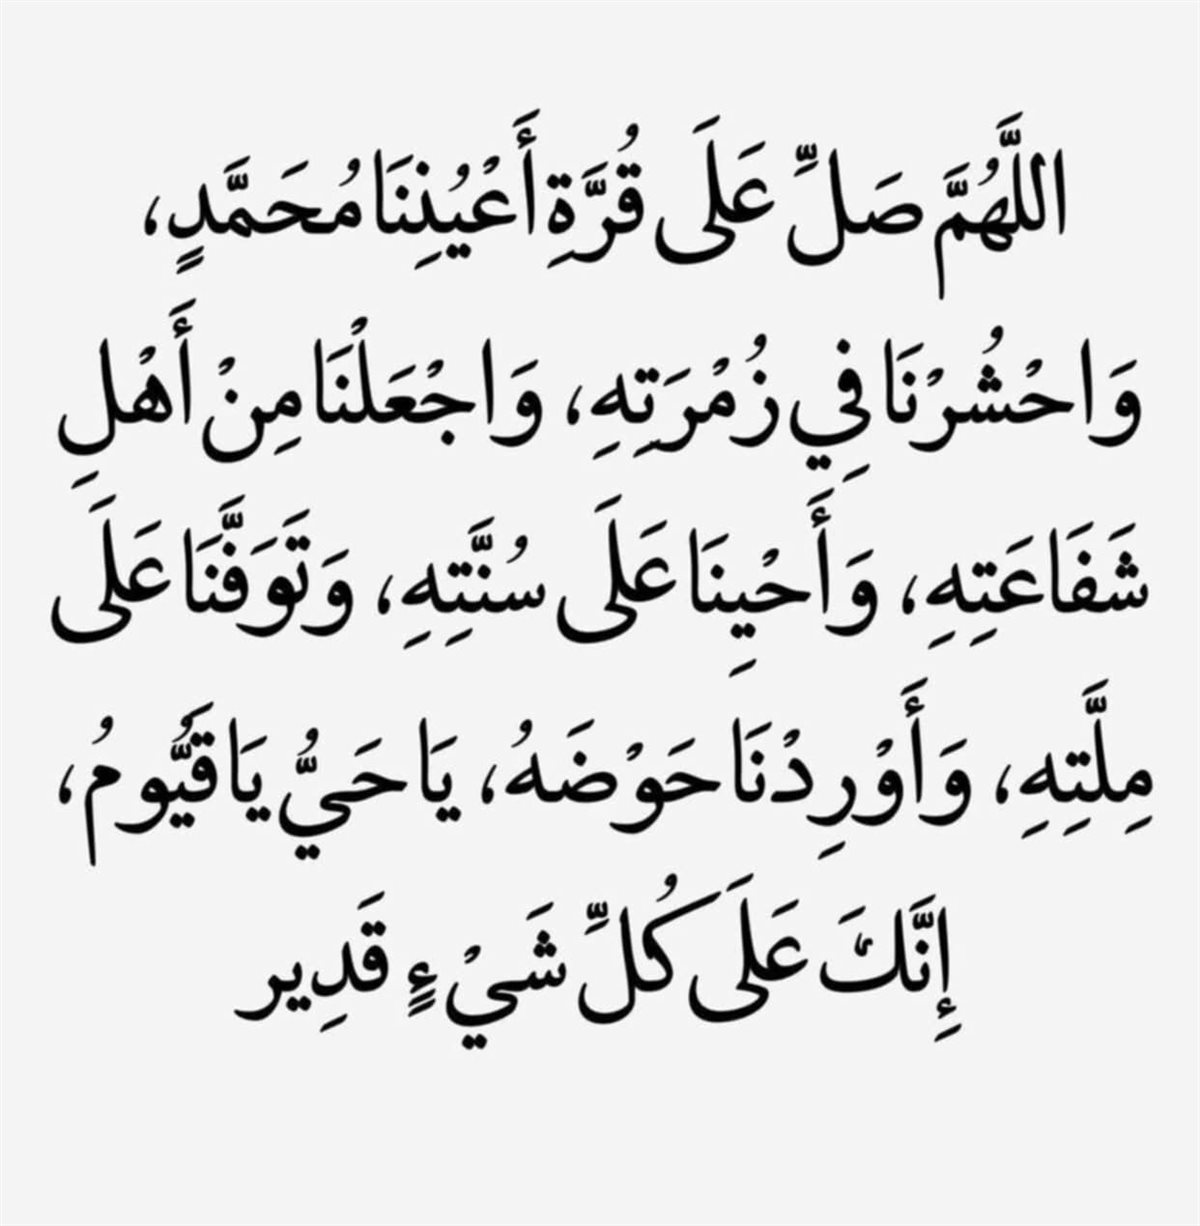 اللَّهُمَّ صَلِّ عَلَى قُرَّةِ أَعْيُنِنَا مُحَمَّدٍ،
وَاحْشُرْنَا فِي زُمْرَتِهِ، وَاجْعَلْنَا مِنْ أَهْلِ
شَفَاعَتِهِ، وَأَحْيِنَا عَلَى سُنَّتِهِ، وَتَوَفَّنَا عَلَى
مِلَّتِهِ، وَأَوْرِدْنَا حَوْضَهُ، يَا حَيُّ يَا قَيُّومُ،
إِنَّكَ عَلَى كُلِّ شَيْءٍ قَدِير